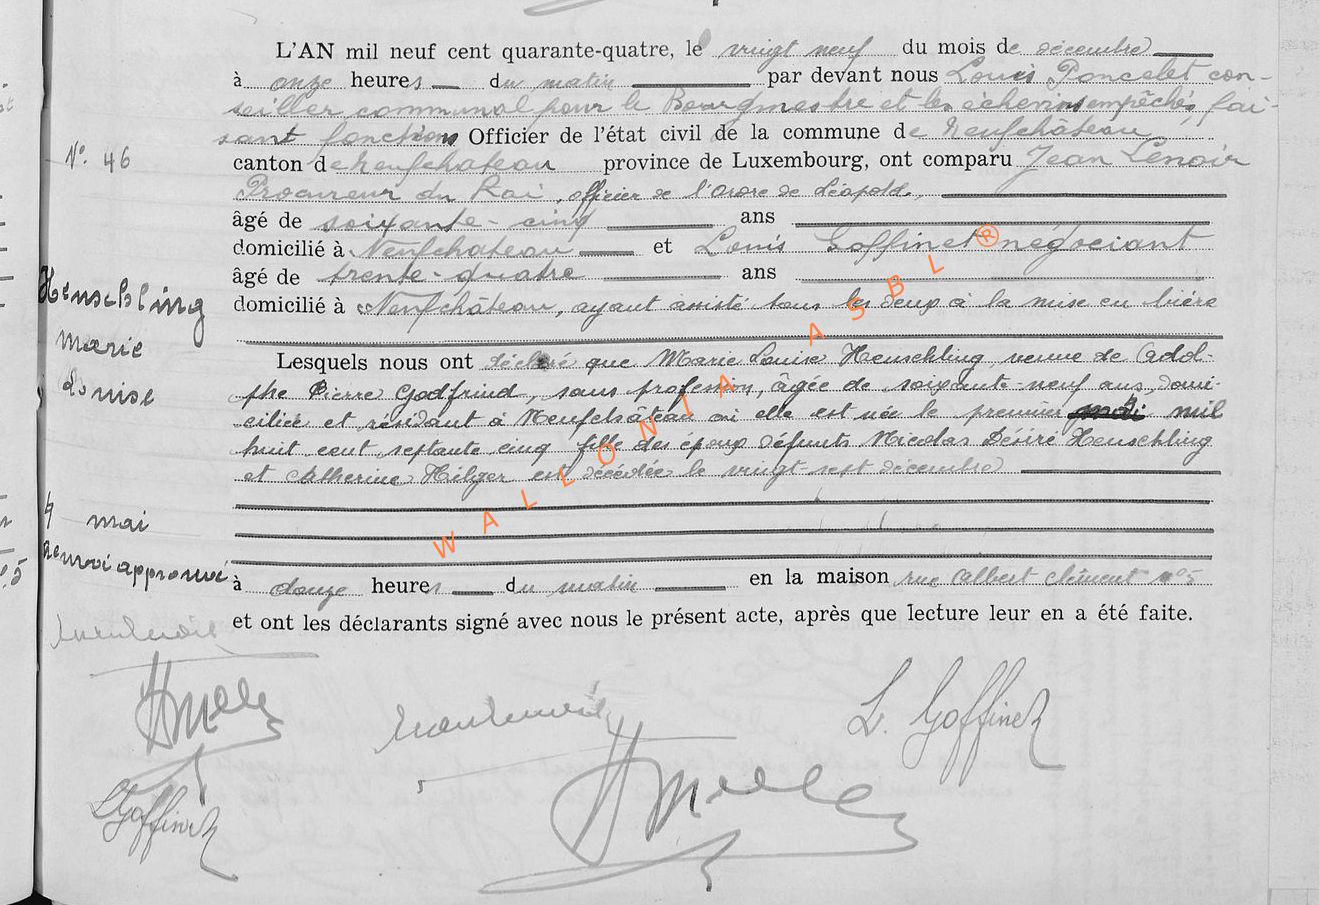 L'AN mil neuf cent quarante-quatre, le vingt neuf du mois de décembre
à onze heures du matin par devant nous Louis Poncelet con-
seiller communal pour le Bourgmestre et les échevins empêchés, fai-
sant fonctions Officier de l'état civil de la commune de Neufchâteau
N° 46
canton de Neufchateau province de Luxembourg, ont comparu Jean Lenoir
Procureur du Roi, officier de l'Ordre de Léopold.
âgé de soixante-cinq ans
domicilié à Neufchateau et Louis Goffinet négociant
âgé de trente-quatre ans
domicilié à Neufchâteau, ayant assisté tous les deux à la mise en bière
Henschling
Marie
Louise
Lesquels nous ont déclaré que Marie Louise Henschling, veuve de Adol-
phe Pierre Godfrind, sans profession, âgée de soixante-neuf ans, domi-
ciliée et résidant à Neufchâteau où elle est née le premier mil
huit cent septante cinq fille des époux défunts Nicolas Désiré Henschling
et Catherine Hilger est décédée le vingt-sept décembre
4 mai
Renvoi approuvé
à douze heures du matin en la maison rue Albert Clément n° 5
et ont les déclarants signé avec nous le présent acte, après que lecture leur en a été faite.
L. Goffinet
LGoffinet
WALLONIA ASBL ®